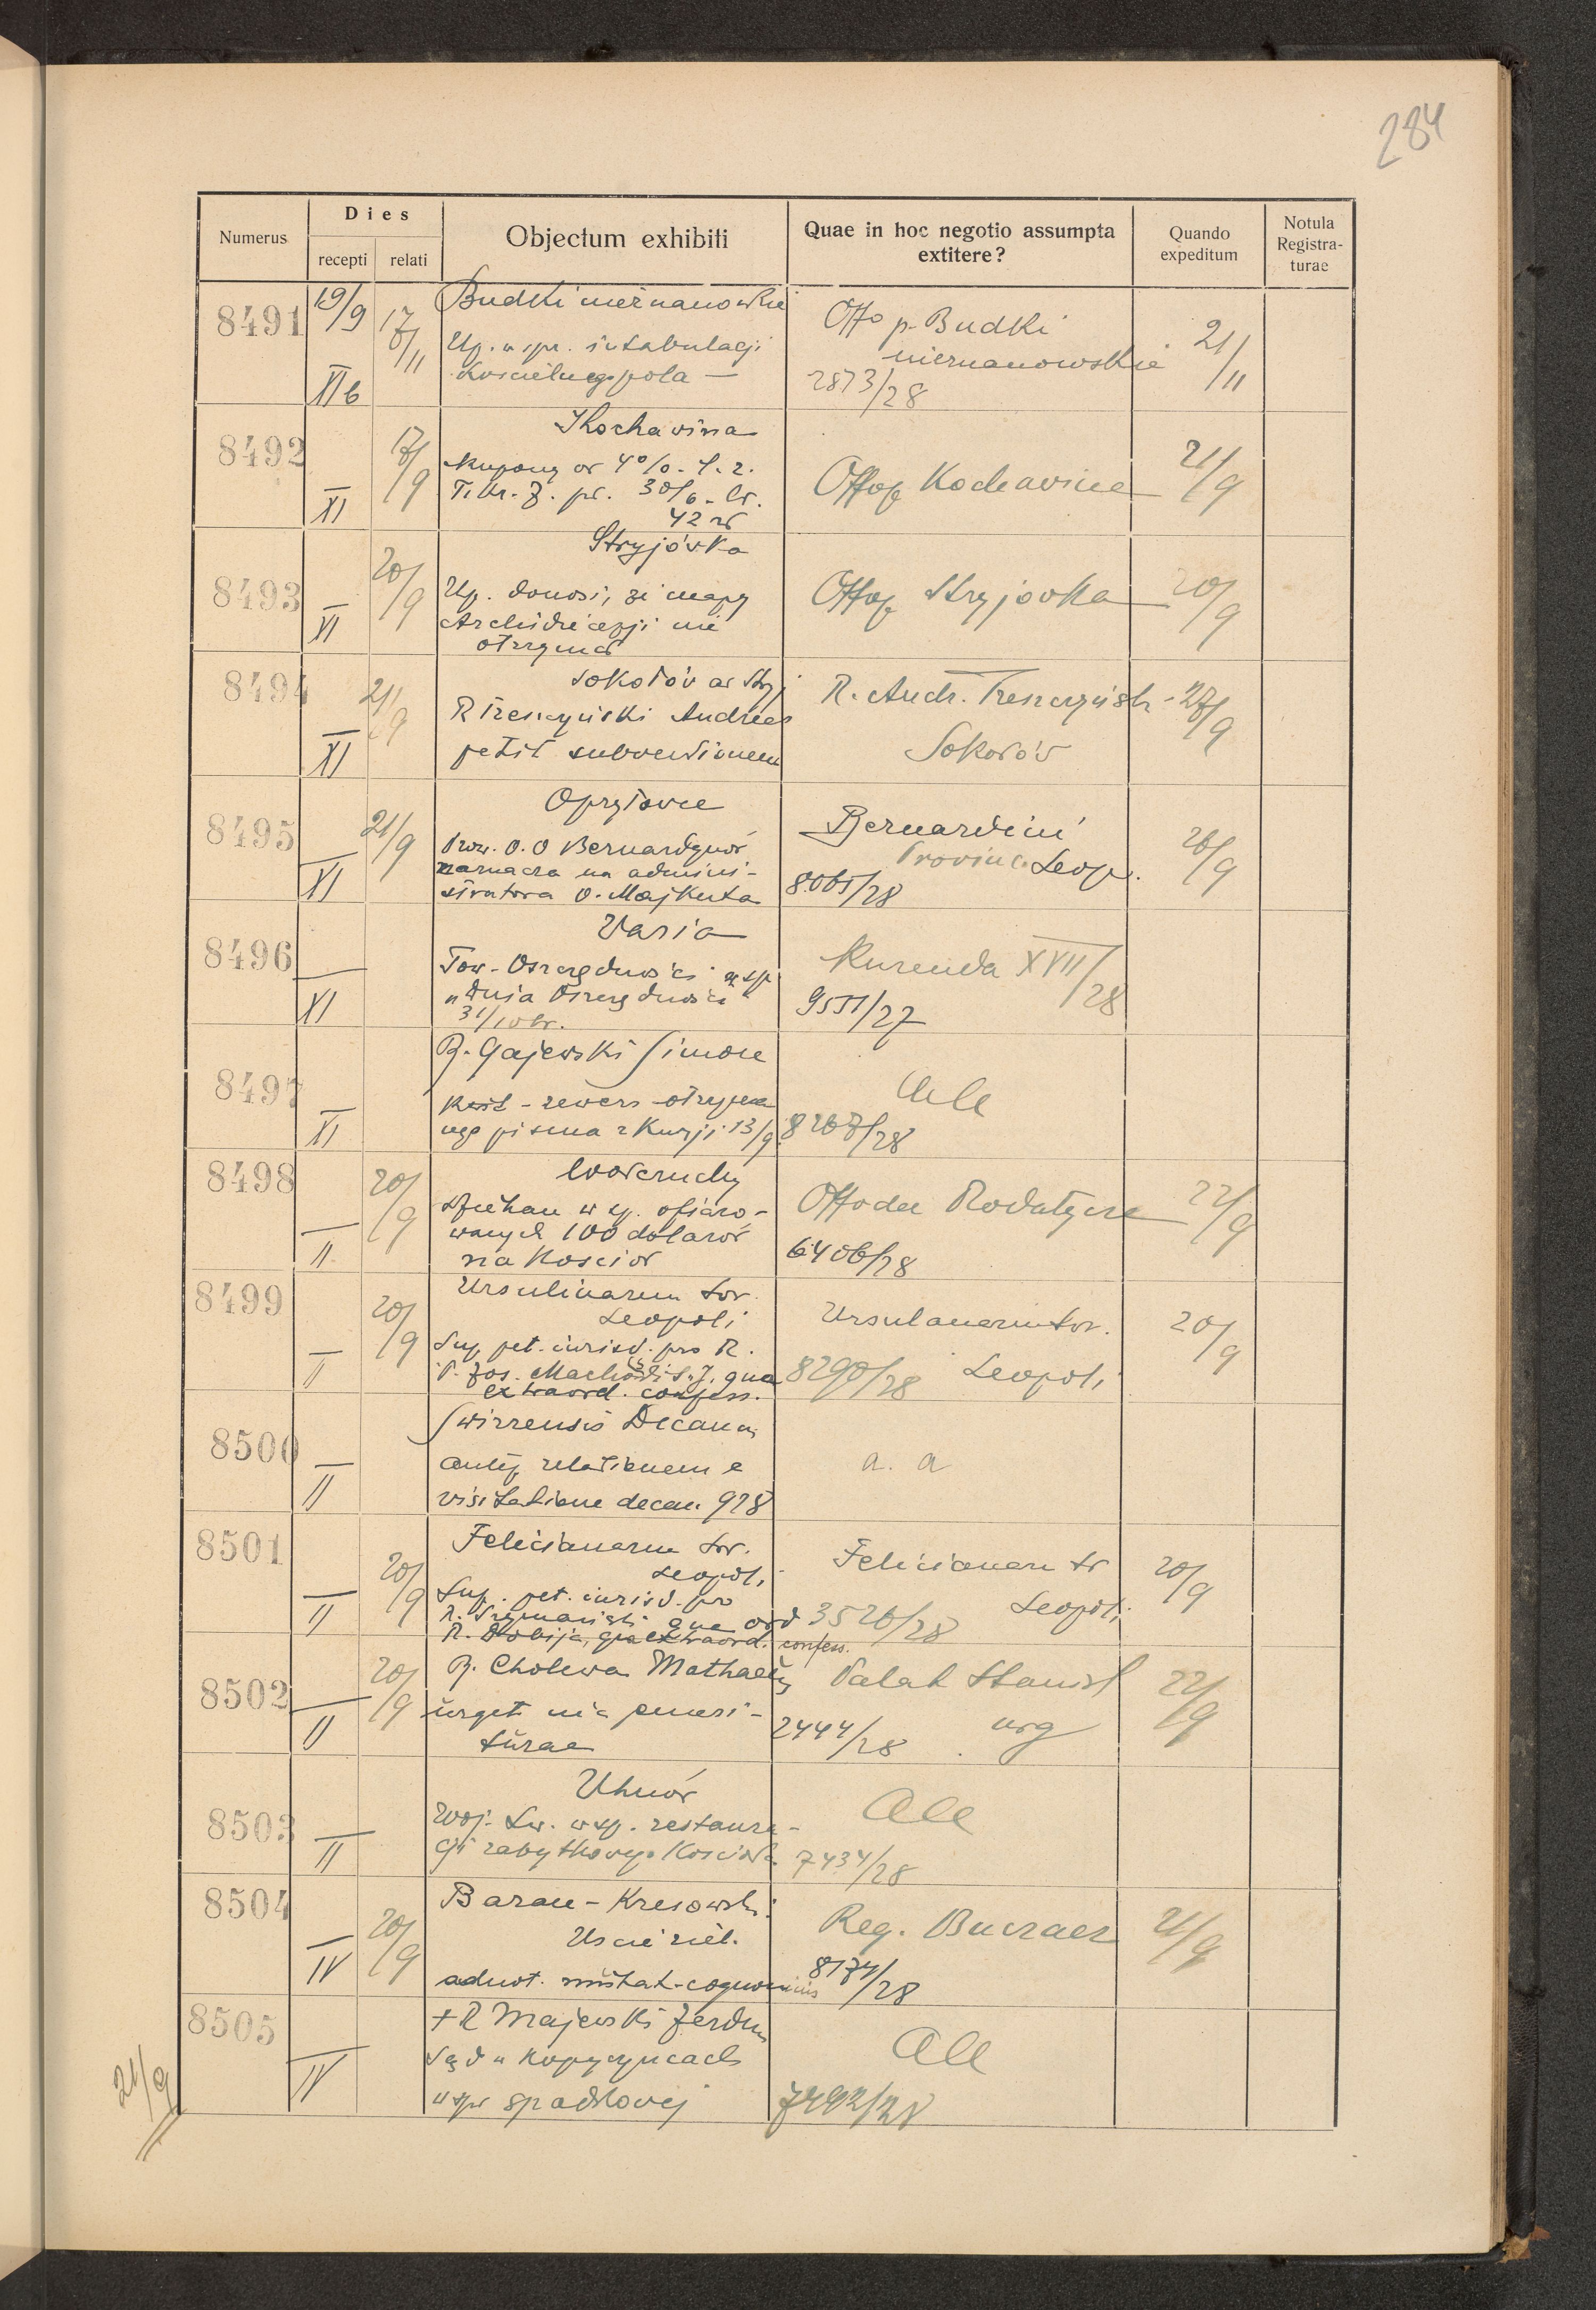 284
Numerus
Dies
recepti relati
Objectum exhibiti
Quae in hoc negotio assumpta
extitere?
Quando
expeditum
Notula
Registra-
turae
8491 19/9 17/11 Budki nieznanowskie
Up. w spr. intabulacji
kościelnego pola —
XI b
Offo p. Budki
nieznanowskie
2873/28
21/11
8492 17/9 Kochawina
kupony od 4% - l. z.
T. kr. Z. pr. 30/6 - br.
42 zł
XI
Offop Kochawina
21/9
8493 20/9 Stryjówka
Up. donosi, że mapy
Archidiecezji nie
otrzymał
XI
Offop Stryjówka
20/9
8494 21/9 Sokołów ad Stryj
R Trenczyński Andreas
petit subventionem
XI
R. Andr. Trenczyńsk-
Sokołów
27/9
8495 21/9 Opryłowce
Prow. O.O Bernardynów
naznacza na admini-
stratora O. Majkuta
XI
Bernardini
Provinc. Leop.
8065/28
26/9
8496 Varia
Tow. Oszczędności w sp
"Dnia Oszczędności"
31/10 br.
XI
Kurenda XVII/28
9551/27
8497 R. Gajewski Simon
kwit - rewers otrzyma
nego pisma z Kurji 13/9
XI
Alle
8267/28
8498 20/9 Wołczuchy
Dziekan w sp. ofiaro-
wanych 100 dolarów
na Kościół
II
Offo dec Rodatycze
6406/28
22/9
8499 20/9 Ursulinarum sor.
Leopoli
Sup. pet. iurisd. pro R.
P. Jos. S. J. qua
extraord. confess.
II
Ursulanarum sor.
8290/28 Leopoli
20/9
8500 Swirzensis Decanus
relationem e
visitatione decan. 928
II
a. a
8501 20/9 Felicianarum sor.
Leopoli
Sup. pet. iurisd. pro
R. Szymański qua ord
R. Dobija, qua extraord. confess.
II
Felicianarum sr
3526/28 Leopoli
20/9
8502 20/9 R. Cholewa Mathaeus
urget
turae
II
Palat Stanisl
2444/28 urg
22/9
8503 Uhnów
Woj. Lw. w sp. restaura-
cji zabytkowego Kościoła
II
Alle
7434/28
8504 20/9 Baran - Kresowski
Uście ziel.
adnot. mutat. cognominis
IV
Reg. Buczacz
8174/28
21/9
8505 + R Majewski Ferdin
Sąd w Kopyczyńcach
w spr spadkowej
IV
Alle
7492/28
21/9